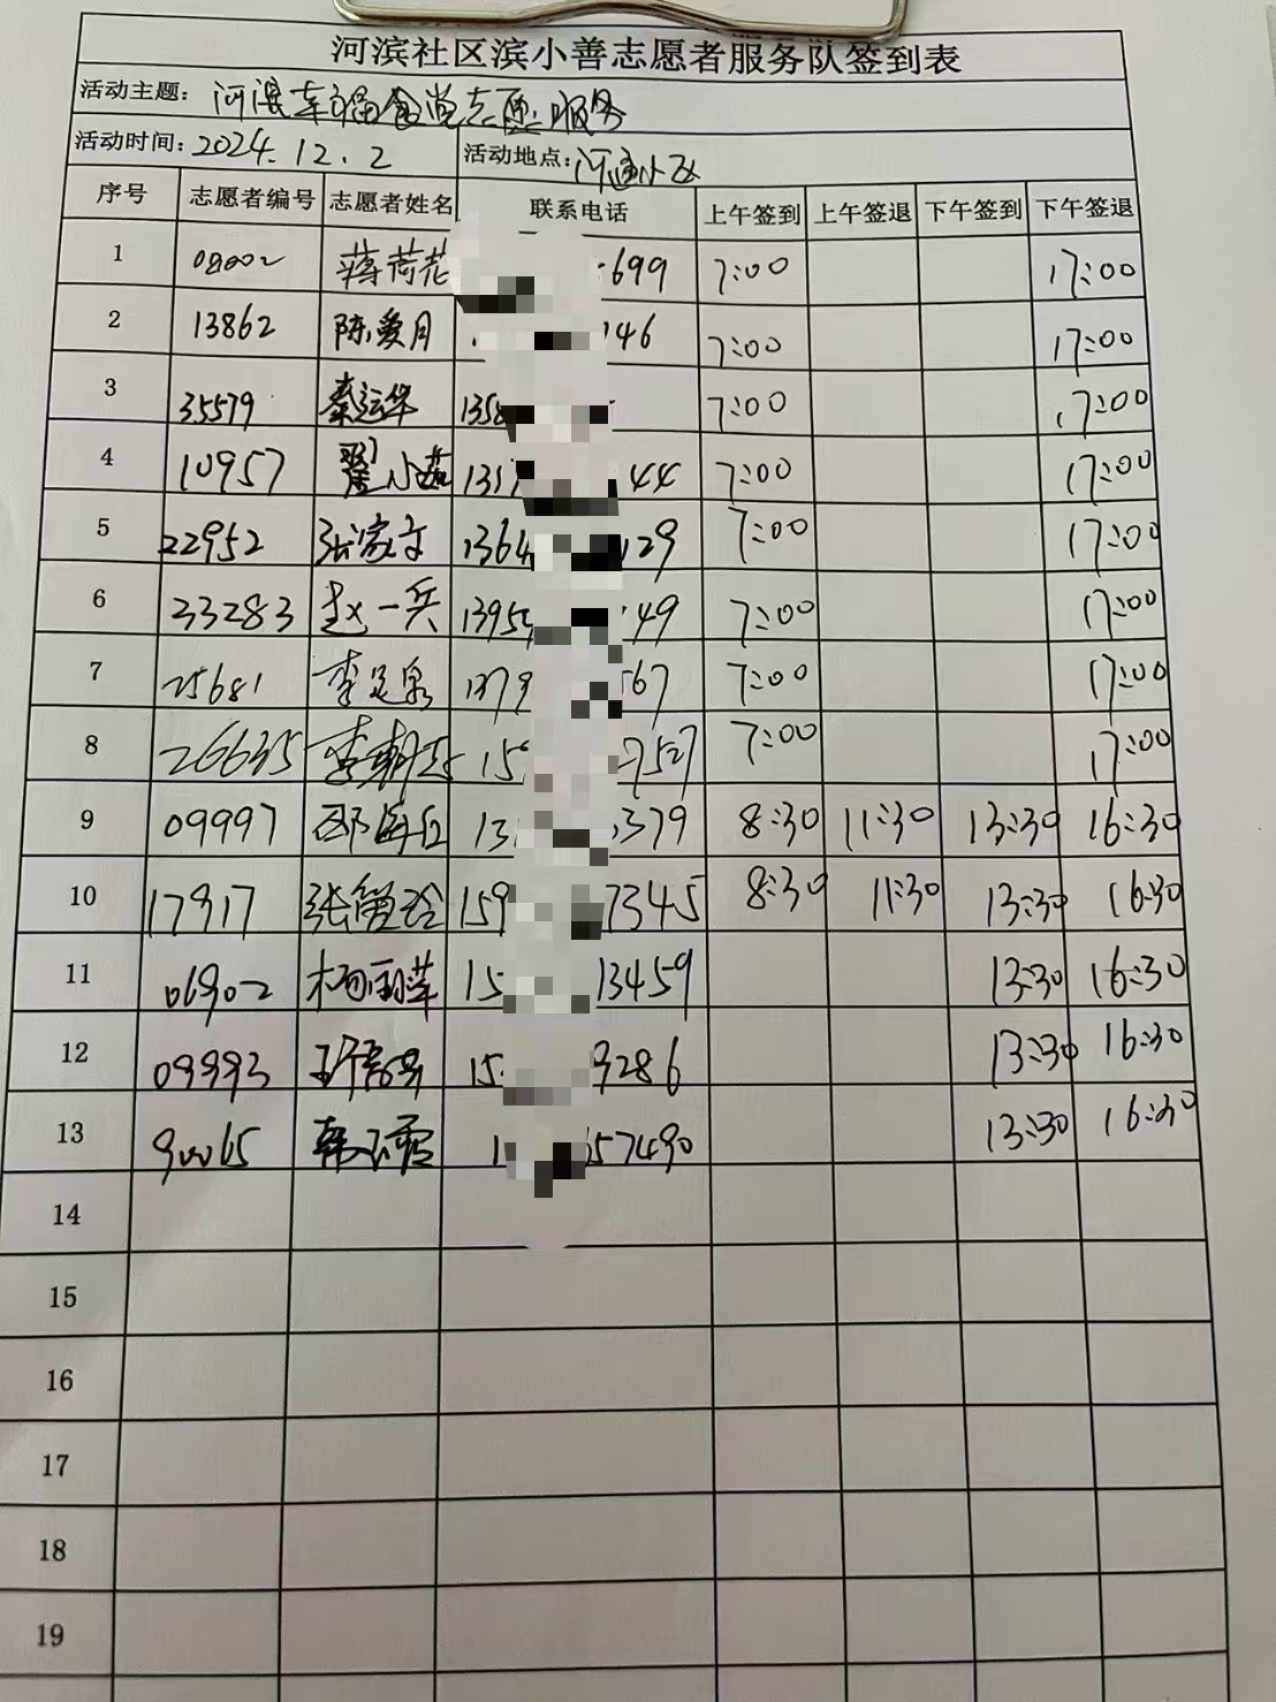 河滨社区滨小善志愿者服务队签到表
活动主题: 河滨幸福食堂志愿服务
活动时间: 2024.12.2 活动地点: 河滨小区
序号 志愿者编号 志愿者姓名 联系电话 上午签到 上午签退 下午签到 下午签退
1 蒋荷花 699 7:00 17:00
2 13862 陈爱月 146 7:00 17:00
3 35579 秦运华 1358 7:00 17:00
4 10957 翟小茹 131 44 7:00 17:00
5 22952 张家文 1364 129 7:00 17:00
6 23283 赵一兵 1395 149 7:00 17:00
7 25681 李見泉 1379 567 7:00 17:00
8 26635 李朝 15 7527 7:00 17:00
9 09997 邵海丘 13 379 8:30 11:30 13:30 16:30
10 17917 张 玲 159 7345 8:30 11:30 13:30 16:30
11 06902 杨雨莲 15 13459 13:30 16:30
12 09993 15 9286 13:30 16:30
13 90065 韩玉霞 1 57490 13:30 16:30
14
15
16
17
18
19